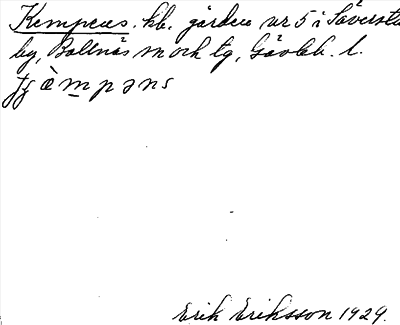 Kempens. hb. gården nr 5 i Säversta
by, Bollnäs m och tg, Gävleb. l.
erik Eriksson 1929.